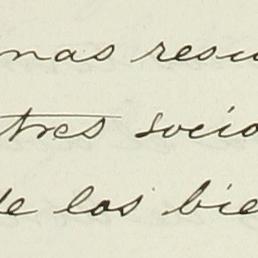 nas resu
tres socio
de los bie